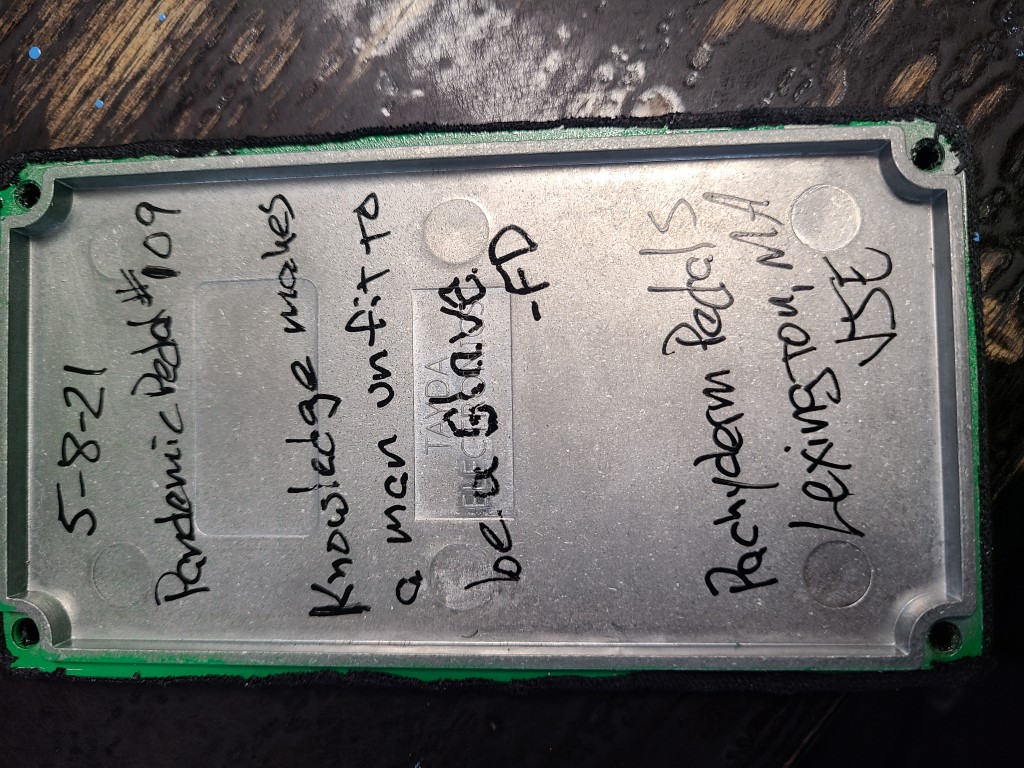 5-8-21
Pandemic Pedal #109
Knowledge makes
a man unfit to
TAYDA
be a Slave.
ELECTRONICS
-FD
Pachyderm Pedals
Lexington, MA
VJE